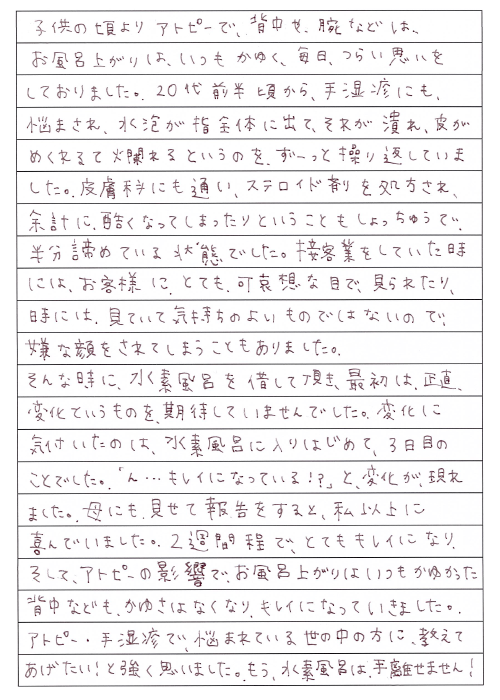 子供の頃よりアトピーで、背中や、腕などは、
お風呂上がりは、いつもかゆく、毎日、つらい思いを
しておりました。20代前半頃から、手湿疹にも、
悩まされ、水泡が指全体に出て、それが潰れ、皮が
めくれるて火闌れるというのを、ずーっと繰り返していま
した。皮膚科にも通い、ステロイド剤を処方され、
余計に、酷くなってしまったりということもしょっちゅうで、
半分諦めている状態でした。接客業をしていた時
には、お客様に、とても、可哀想な目で、見られたり、
時には、見ていて気持ちのよいものではないので、
嫌な顔をされてしまうこともありました。
そんな時に、水素風呂を借して頂き、最初は、正直、
変化というものを、期待していませんでした。変化に
気付いたのは、水素風呂に入りはじめて、3日目の
ことでした。「ん…キレイになっている!?」と、変化が、現れ
ました。母にも、見せて報告をすると、私以上に
喜んでいました。2週間程で、とてもキレイになり、
そして、アトピーの影響で、お風呂上がりはいつもかゆかった
背中なども、かゆさはなくなり、キレイになっていきました。
アトピー・手湿疹で、悩まれている世の中の方に、教えて
あげたい!と強く思いました。もう、水素風呂は、手離せません!